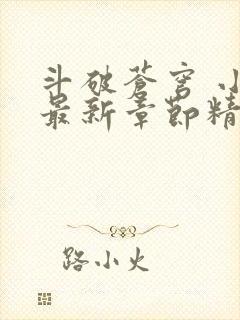 斗破苍穹 小
最新章节精
路小火